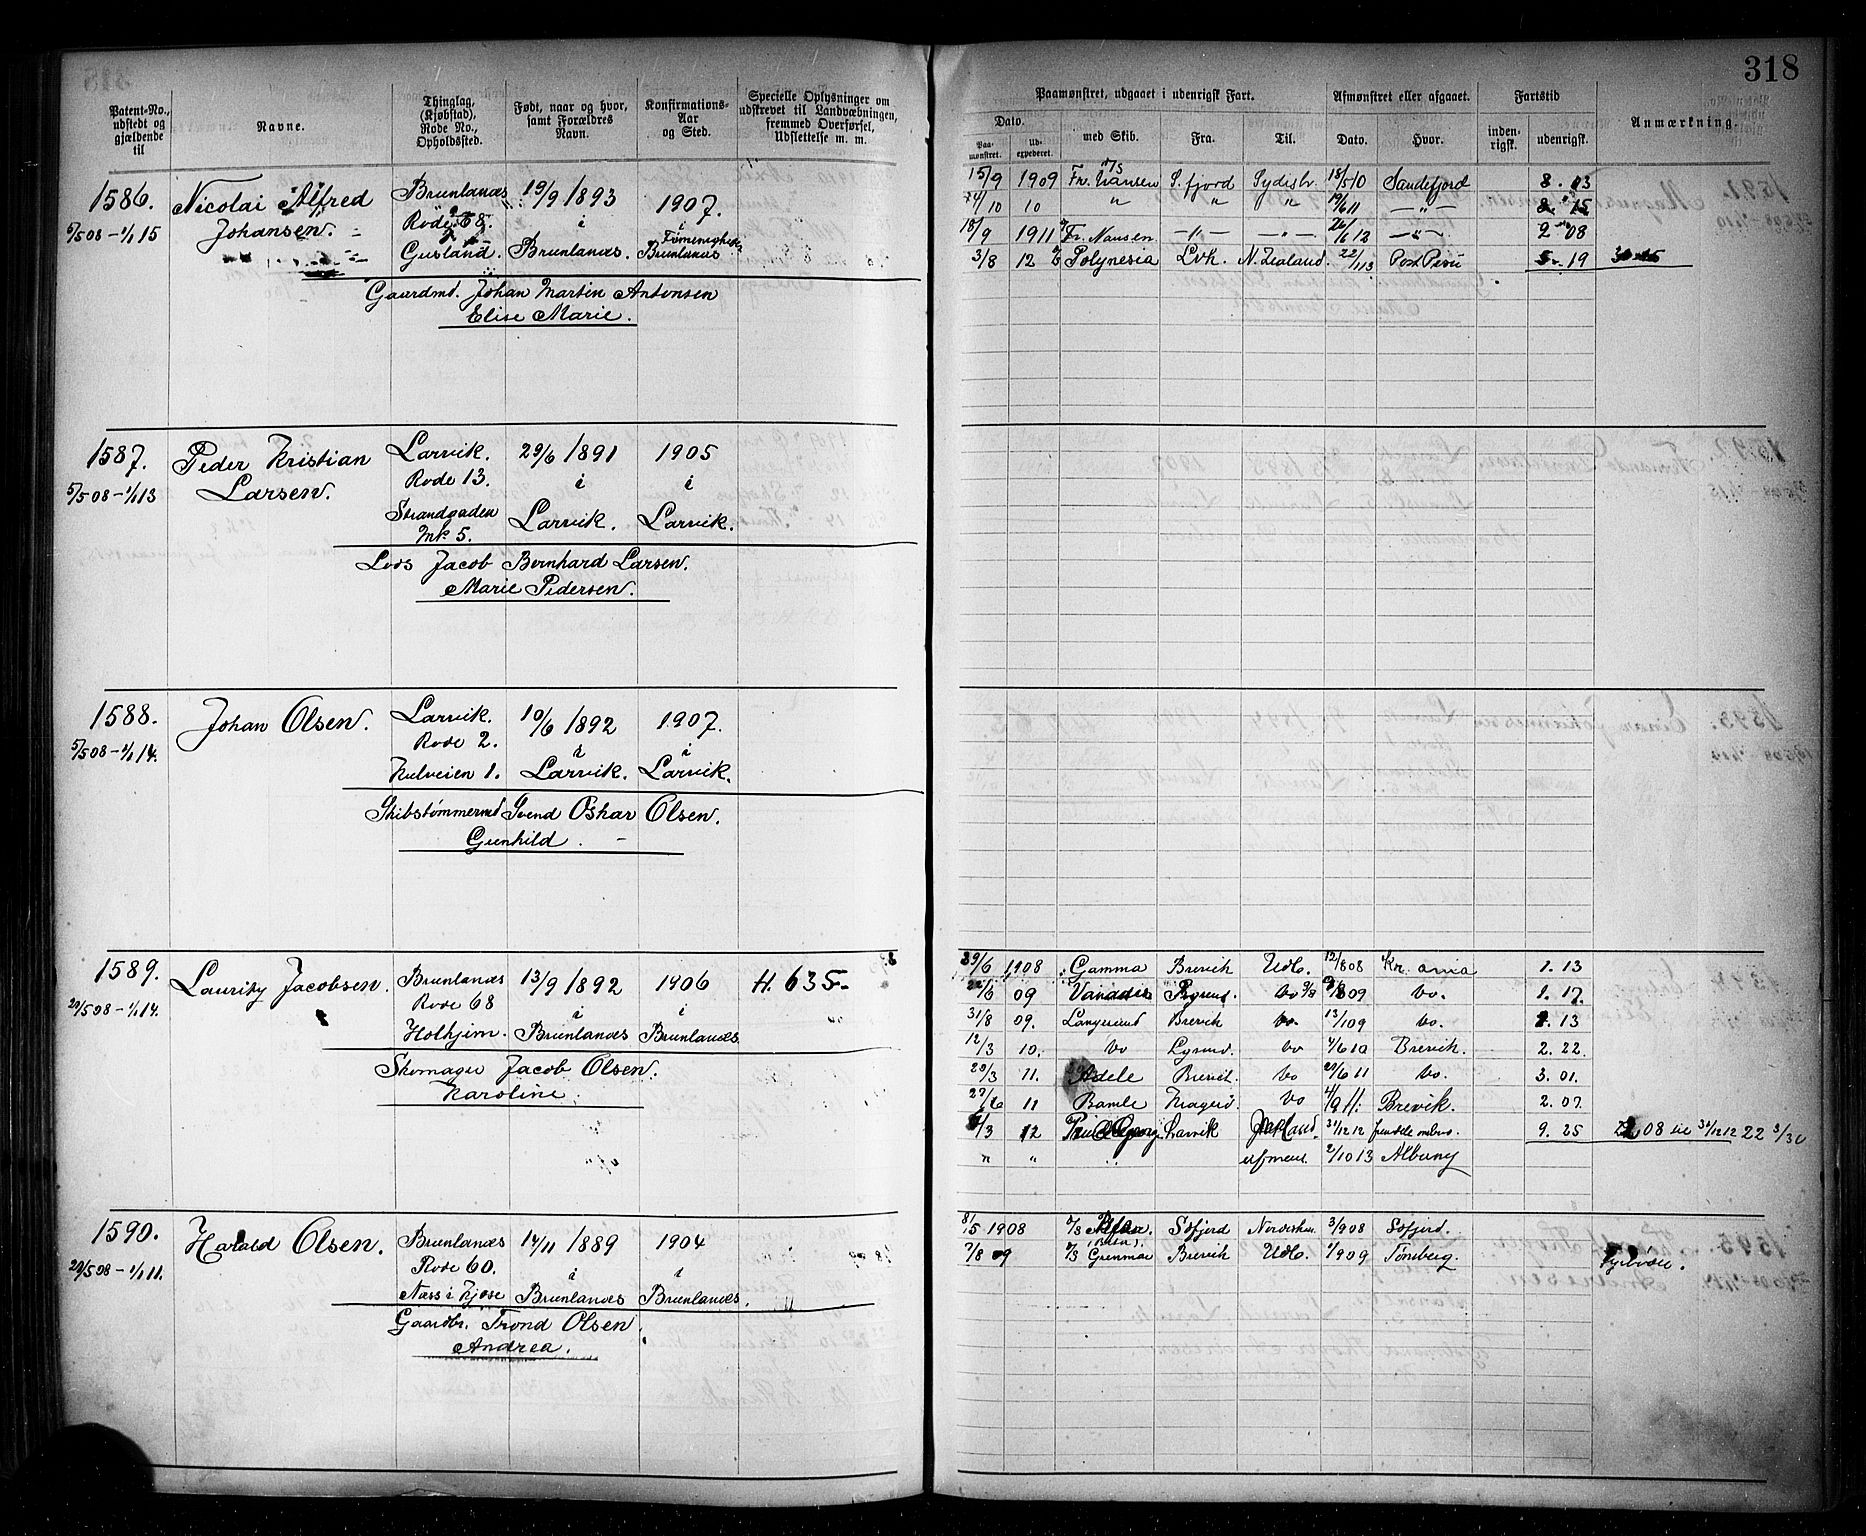 318
Patent-No., udstedt og gjældende til
Navne.
Thinglag, (Kjøbstad), Rode No., Opholdssted.
Født, naar og hvor, samt Forældres Navn.
Konfirmations-Aar og Sted.
Specielle Oplysninger om udskrevet til Landvæbningen, fremmed Overførsel, Udslettelse m. m.
Paamønstret, udgaaet i udenrigsk Fart.
Afmønstret eller afgaaet.
Fartstid
Anmærkning.
Dato.
med Skib.
Fra.
Til.
Dato.
Hvor.
inden-rigsk.
udenrigsk.
Paa-mønstret.
Ud-expederet.
1586.
5/5 08 - 1/1 15
Nicolai Alfred
Johansen.
Brunlanæs
Rode 68.
Gusland.
19/9 1893
i
Brunlanæs.
1907.
i
Brunlanæs
Gaardmd. Johan Martin Antonsen
Elise Marie.
15/9 1909 Fr. Nansen S. fjord Sydish. 18/5 10 Sandefjord 8. 03
10 " " " 19/6 11 — " — 8. 15
18/9 1911 Fr. Nansen — " — — " — 26/6 12 — " — 2 08
3/8 12 Polynesia Lvk. N. Zealand. 22/1 13 Port Pirie 5. 19
1587.
5/5 08 - 1/1 13
Peder Kristian
Larsen.
Larvik.
Rode 13.
Strandgaden
Mk. 5.
29/6 1891
i
Larvik.
1905
i
Larvik.
Lods Jacob Bernhard Larsen.
Marie Pedersen.
1588.
5/5 08 - 1/1 14.
Johan Olsen.
Larvik.
Rode 2.
Kulveien 1.
10/6 1892
i
Larvik.
1907.
i
Larvik.
Skibstømmermd Svend Oskar Olsen.
Gunhild.
1589.
29/5 08 - 1/1 14.
Lauritz Jacobsen.
Brunlanæs
Rode 68
Holhjem.
13/9 1892
i
Brunlanæs
1906
i
Brunlanæs
H. 635
Skomager Jacob Olsen.
Karoline.
29/6 1908 Gamma Brevik Udl. 12/8 08 Kr. ania 1. 13
22/6 09 Vanadis do 09 do. 1. 17
31/8 09. Langesund Brevik do. 13/1 09 do. 2. 13
12/3 10. do do 4/6 10 Brevik. 2. 22.
29/3 11. Adele Brevik. do 29/6 11 do. 3. 01.
11 Bamle Kragerø. do 4/9 11. Brevik. 2. 07.
/3 12 Larvik 31/12 12 9. 25 08 31/12 12 22 3/30
" " 2/10 13 Albany
1590.
29/5 08 - 1/1 11.
Harald Olsen.
Brunlanæs
Rode 60.
Næss i Kjose
14/11 1889
i
Brunlanæs
1904
i
Brunlanæs.
Gaardbr. Trond Olsen
Andrea.
8/5 1908 Søfjord 3/9 08 Søfjord.
7/8 09 Grenmar Brevik Udl. 1/9 09 Tønsberg.